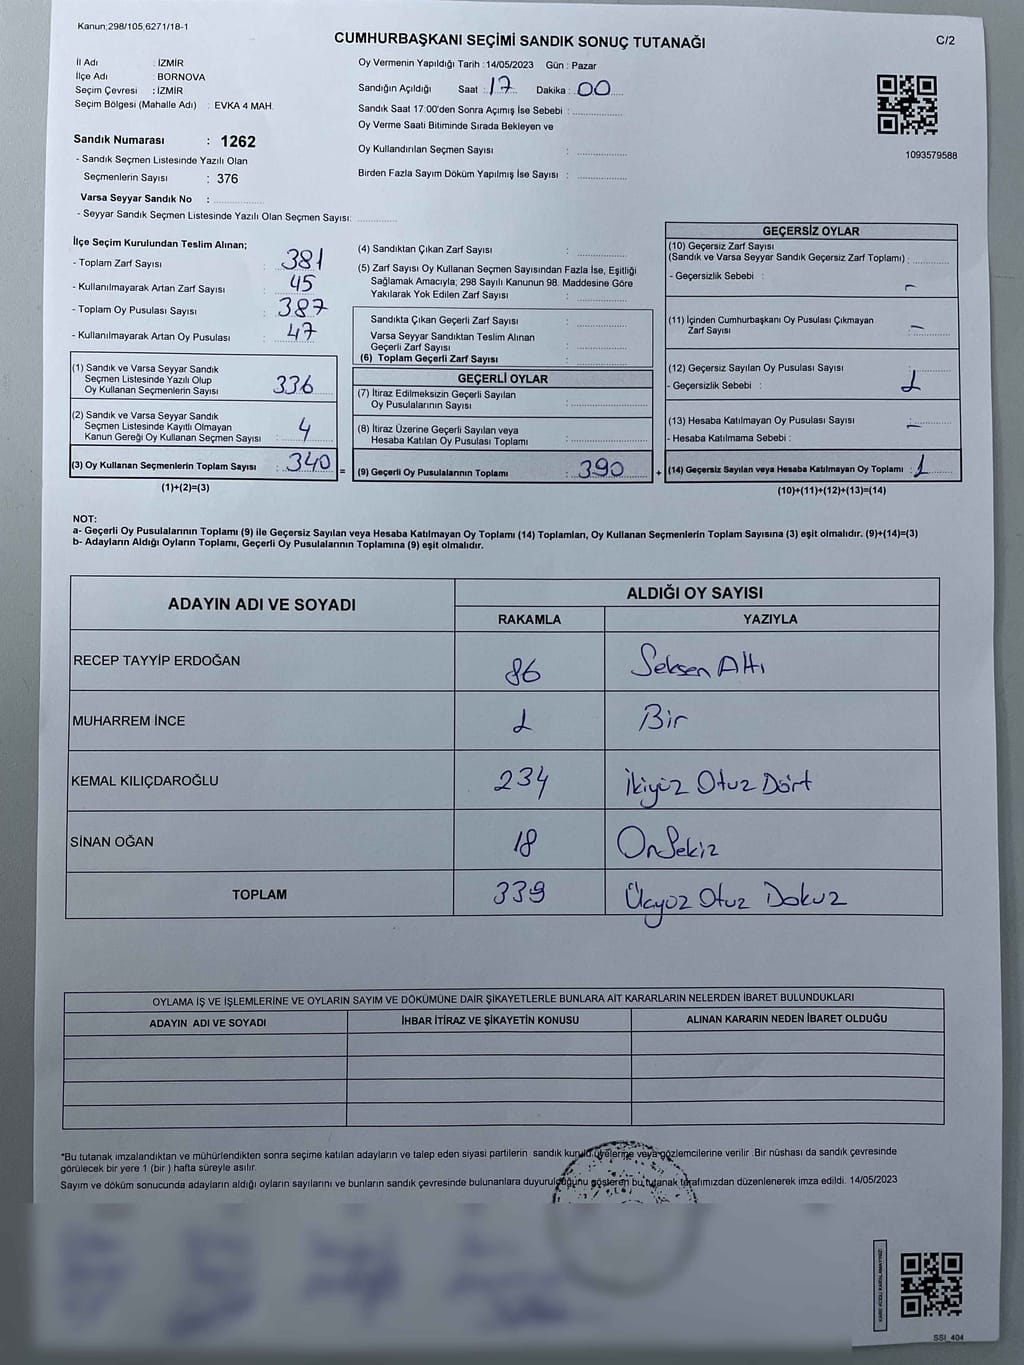 Kanun;298/105,6271/18-1
CUMHURBAŞKANI SEÇİMİ SANDIK SONUÇ TUTANAĞI
C/2
İl Adı : İZMİR
İlçe Adı : BORNOVA
Seçim Çevresi : İZMİR
Seçim Bölgesi (Mahalle Adı) : EVKA 4 MAH.
Oy Vermenin Yapıldığı Tarih : 14/05/2023 Gün : Pazar
Sandığın Açıldığı Saat : 17 Dakika : 00
Sandık Saat 17:00'den Sonra Açımış İse Sebebi :
Oy Verme Saati Bitiminde Sırada Bekleyen ve
Oy Kullandırılan Seçmen Sayısı :
Birden Fazla Sayım Döküm Yapılmış İse Sayısı :
1093579588
Sandık Numarası : 1262
- Sandık Seçmen Listesinde Yazılı Olan
Seçmenlerin Sayısı : 376
Varsa Seyyar Sandık No :
- Seyyar Sandık Seçmen Listesinde Yazılı Olan Seçmen Sayısı:
İlçe Seçim Kurulundan Teslim Alınan;
- Toplam Zarf Sayısı : 381
- Kullanılmayarak Artan Zarf Sayısı : 45
- Toplam Oy Pusulası Sayısı : 387
- Kullanılmayarak Artan Oy Pusulası : 47
(1) Sandık ve Varsa Seyyar Sandık
Seçmen Listesinde Yazılı Olup
Oy Kullanan Seçmenlerin Sayısı 336
(2) Sandık ve Varsa Seyyar Sandık
Seçmen Listesinde Kayıtlı Olmayan
Kanun Gereği Oy Kullanan Seçmen Sayısı : 4
(3) Oy Kullanan Seçmenlerin Toplam Sayısı : 340 =
(1)+(2)=(3)
(4) Sandıktan Çıkan Zarf Sayısı :
(5) Zarf Sayısı Oy Kullanan Seçmen Sayısından Fazla İse, Eşitliği
Sağlamak Amacıyla; 298 Sayılı Kanunun 98. Maddesine Göre
Yakılarak Yok Edilen Zarf Sayısı :
Sandıkta Çıkan Geçerli Zarf Sayısı :
Varsa Seyyar Sandıktan Teslim Alınan
Geçerli Zarf Sayısı :
(6) Toplam Geçerli Zarf Sayısı :
GEÇERLİ OYLAR
(7) İtiraz Edilmeksizin Geçerli Sayılan
Oy Pusulalarının Sayısı :
(8) İtiraz Üzerine Geçerli Sayılan veya
Hesaba Katılan Oy Pusulası Toplamı :
(9) Geçerli Oy Pusulalarının Toplamı : 390 +
GEÇERSİZ OYLAR
(10) Geçersiz Zarf Sayısı
(Sandık ve Varsa Seyyar Sandık Geçersiz Zarf Toplamı) :
- Geçersizlik Sebebi : -
(11) İçinden Cumhurbaşkanı Oy Pusulası Çıkmayan
Zarf Sayısı : -
(12) Geçersiz Sayılan Oy Pusulası Sayısı :
- Geçersizlik Sebebi : 1
(13) Hesaba Katılmayan Oy Pusulası Sayısı : -
- Hesaba Katılmama Sebebi :
(14) Geçersiz Sayılan veya Hesaba Katılmayan Oy Toplamı : 1
(10)+(11)+(12)+(13)=(14)
NOT:
a- Geçerli Oy Pusulalarının Toplamı (9) ile Geçersiz Sayılan veya Hesaba Katılmayan Oy Toplamı (14) Toplamları, Oy Kullanan Seçmenlerin Toplam Sayısına (3) eşit olmalıdır. (9)+(14)=(3)
b- Adayların Aldığı Oyların Toplamı, Geçerli Oy Pusulalarının Toplamına (9) eşit olmalıdır.
ADAYIN ADI VE SOYADI
ALDIĞI OY SAYISI
RAKAMLA YAZIYLA
RECEP TAYYİP ERDOĞAN 86 Seksen Altı
MUHARREM İNCE 1 Bir
KEMAL KILIÇDAROĞLU 234 İkiyüz Otuz Dört
SİNAN OĞAN 18 OnSekiz
TOPLAM 339 Üçyüz Otuz Dokuz
OYLAMA İŞ VE İŞLEMLERİNE VE OYLARIN SAYIM VE DÖKÜMÜNE DAİR ŞİKAYETLERLE BUNLARA AİT KARARLARIN NELERDEN İBARET BULUNDUKLARI
ADAYIN ADI VE SOYADI İHBAR İTİRAZ VE ŞİKAYETİN KONUSU ALINAN KARARIN NEDEN İBARET OLDUĞU
*Bu tutanak imzalandıktan ve mühürlendikten sonra seçime katılan adayların ve talep eden siyasi partilerin sandık kurulu üyelerine veya gözlemcilerine verilir. Bir nüshası da sandık çevresinde
görülecek bir yere 1 (bir ) hafta süreyle asılır.
Sayım ve döküm sonucunda adayların aldığı oyların sayılarını ve bunların sandık çevresinde bulunanlara duyurulduğunu gösteren bu tutanak tarafımızdan düzenlenerek imza edildi. 14/05/2023
SSI_404